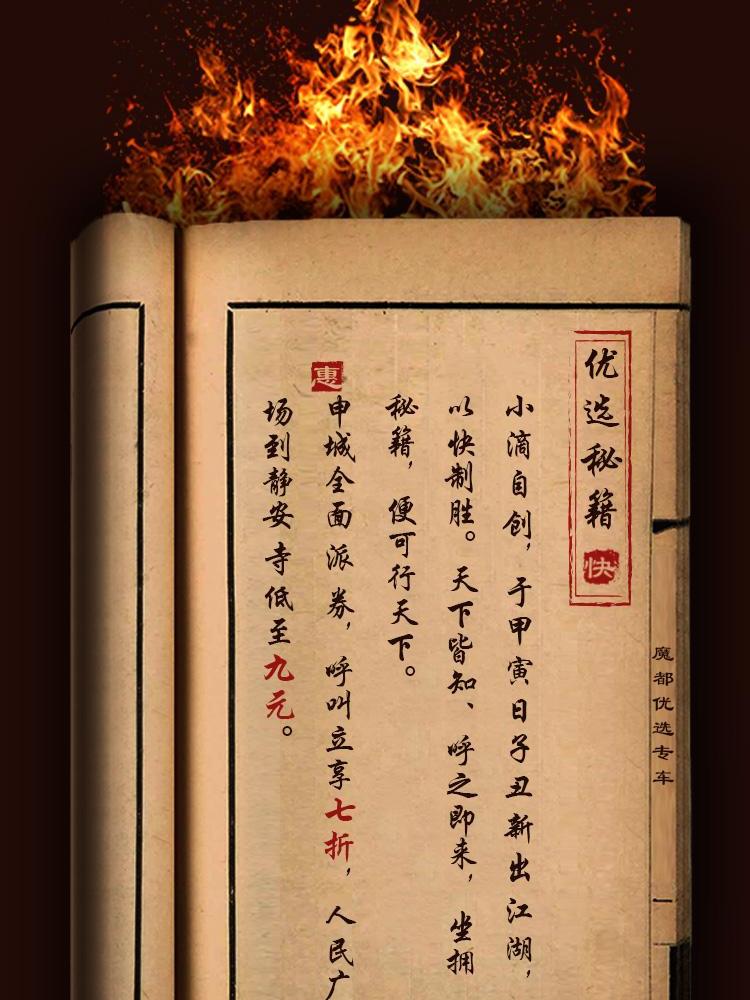 魔都优选专车
优选秘籍 快
小滴自创，于甲寅日子丑新出江湖，
以快制胜。天下皆知、呼之即来，坐拥
秘籍，便可行天下。
惠
申城全面派券，呼叫立享七折，人民广
场到静安寺低至九元。